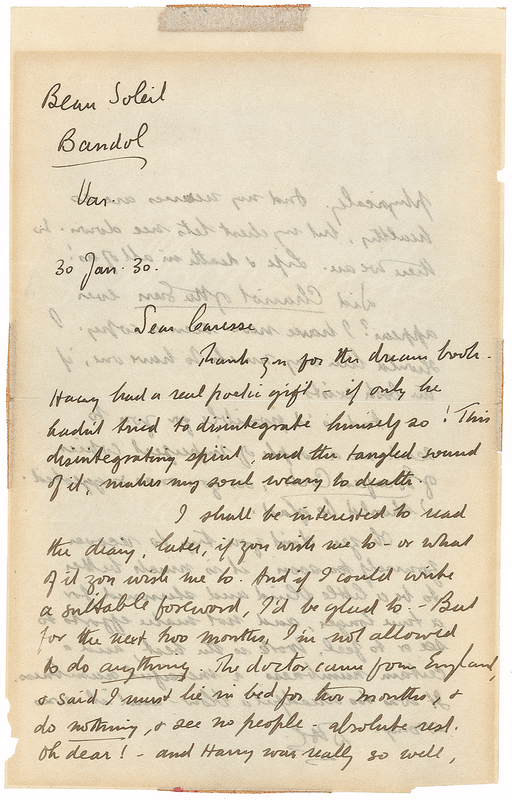 Beau Soleil
Bandol
Var.
30 Jan. 30.
Dear Caresse
Thank you for the dream book.
Harry had a real poetic gift - if only he
hadn't tried to disintegrate himself so! This
disintegrating spirit, and the tangled sound
of it, makes my soul weary to death.
I shall be interested to read
the diary, later, if you wish me to - or what
of it you wish me to. And if I could write
a suitable foreword, I'd be glad to. - But
for the next two months, I'm not allowed
to do anything. The doctor came from England,
& said I must lie in bed for two months, &
do nothing, & see no people - absolute rest.
Oh dear! - and Harry was really so well,